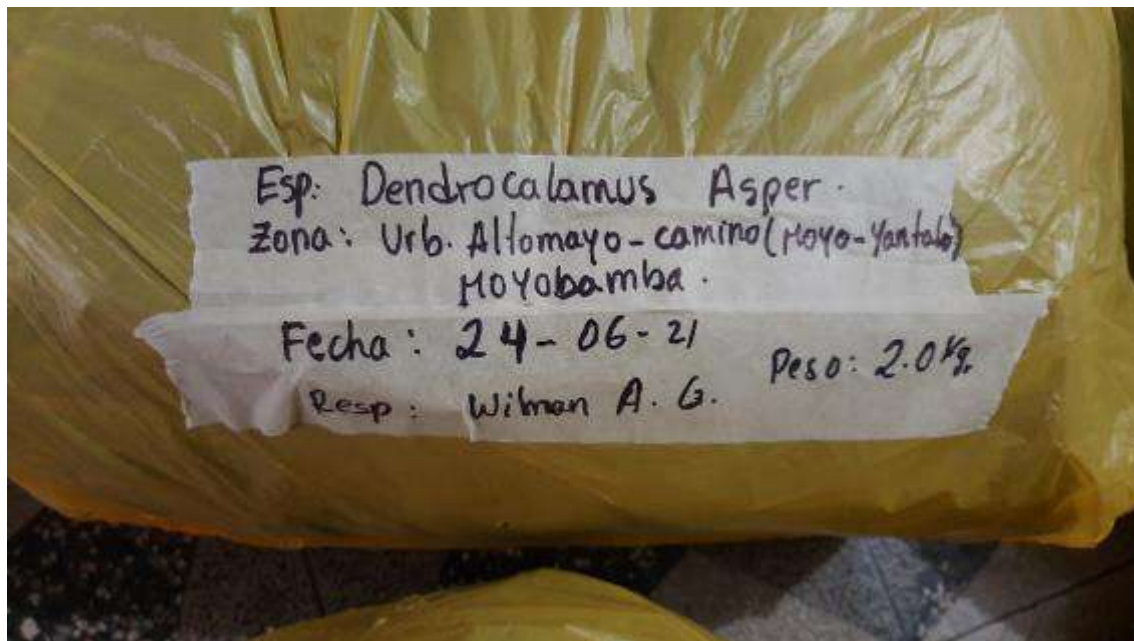 Esp: Dendrocalamus Asper.
Zona: Urb. Altomayo - camino (Moyo - Yantalo)
Moyobamba.
Fecha: 24 - 06 - 21
Peso: 2.0 Kg.
Resp: Wilman A. G.